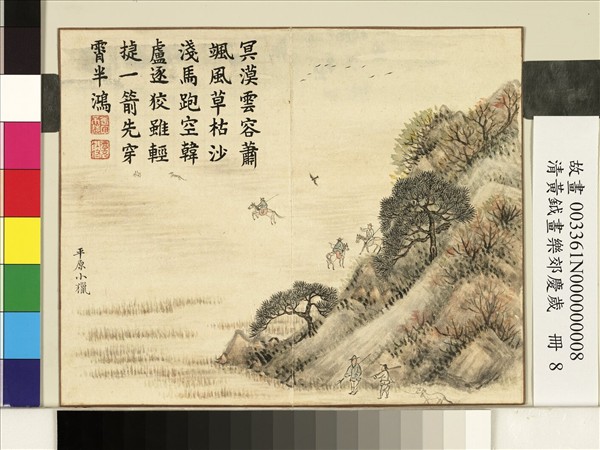 冥漠雲容蕭
颯風草枯沙
淺馬跑空韓
盧逐狡雖輕
捷一箭先穿
霄半鴻
平原小獵
故畫 003361N000000008
清黃鉞畫樂郊慶歲 冊 8